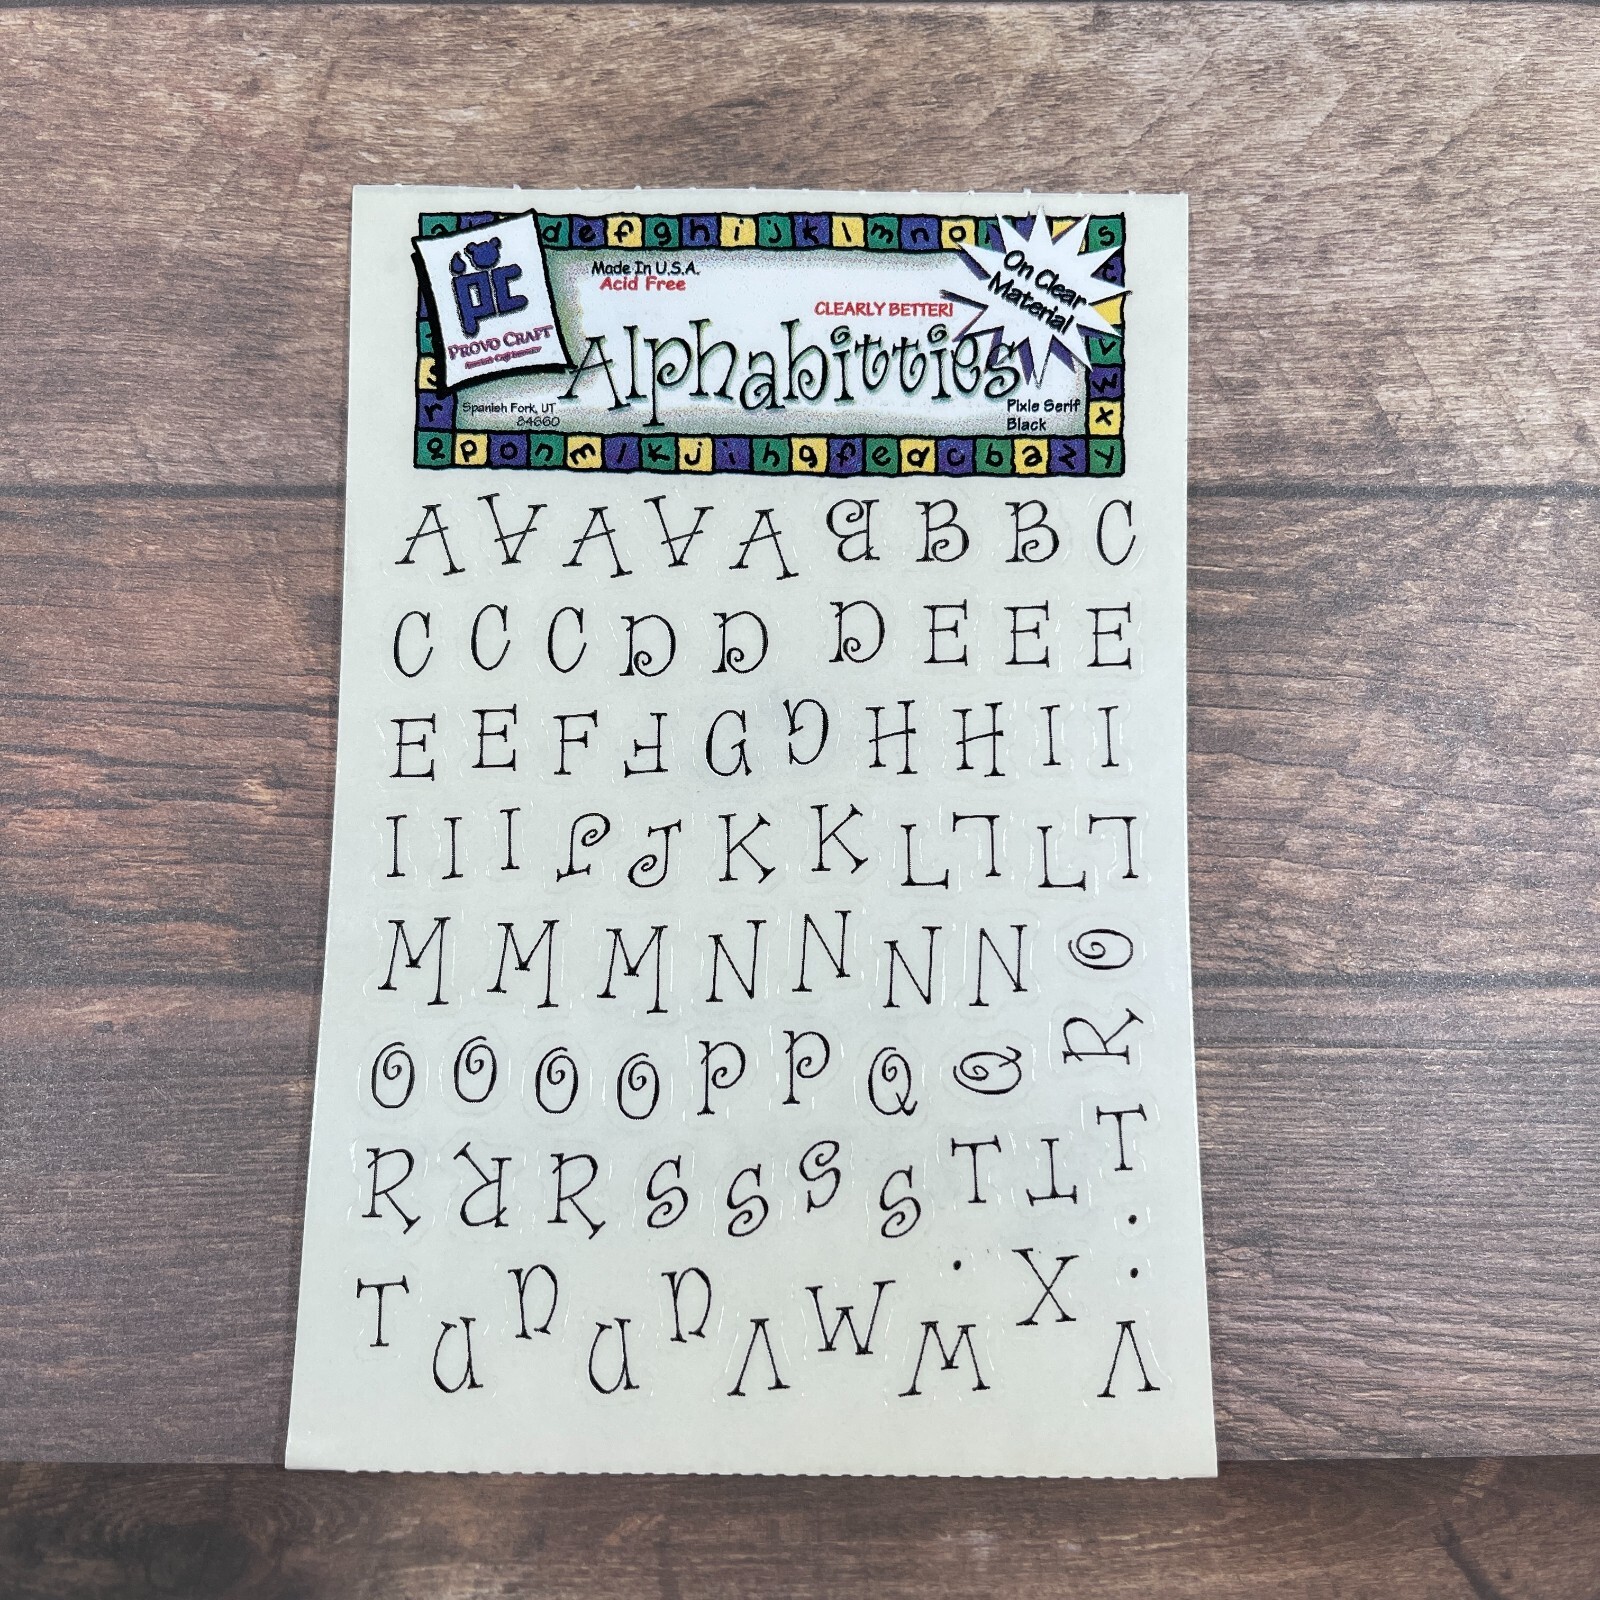 d e f g h i j k l m n o s
Made In U.S.A.
Acid Free
On Clear
Material
CLEARLY BETTER!
PC
PROVO CRAFT
Alphabitties
Spanish Fork, UT
84660
Pixie Serif
Black
v w x
r
q p o n m l k j i h g f e d c b a z y
A A A A A B B B C
C C C D D D E E E
E E F F G G H H I I
I I I J J K K L L L L
M M M N N N N O
O O O O P P Q Q R
R R R S S S S T T T
T U U U U V W W X . : V